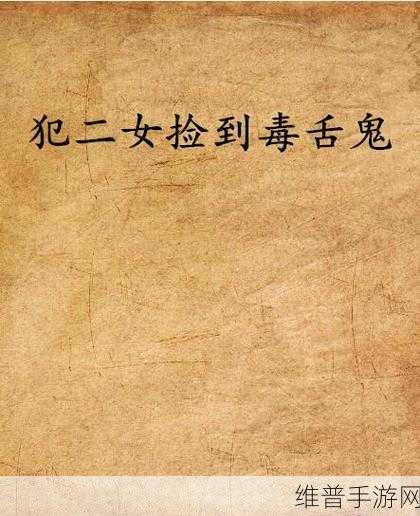 犯二女捡到毒舌鬼
维普手游网